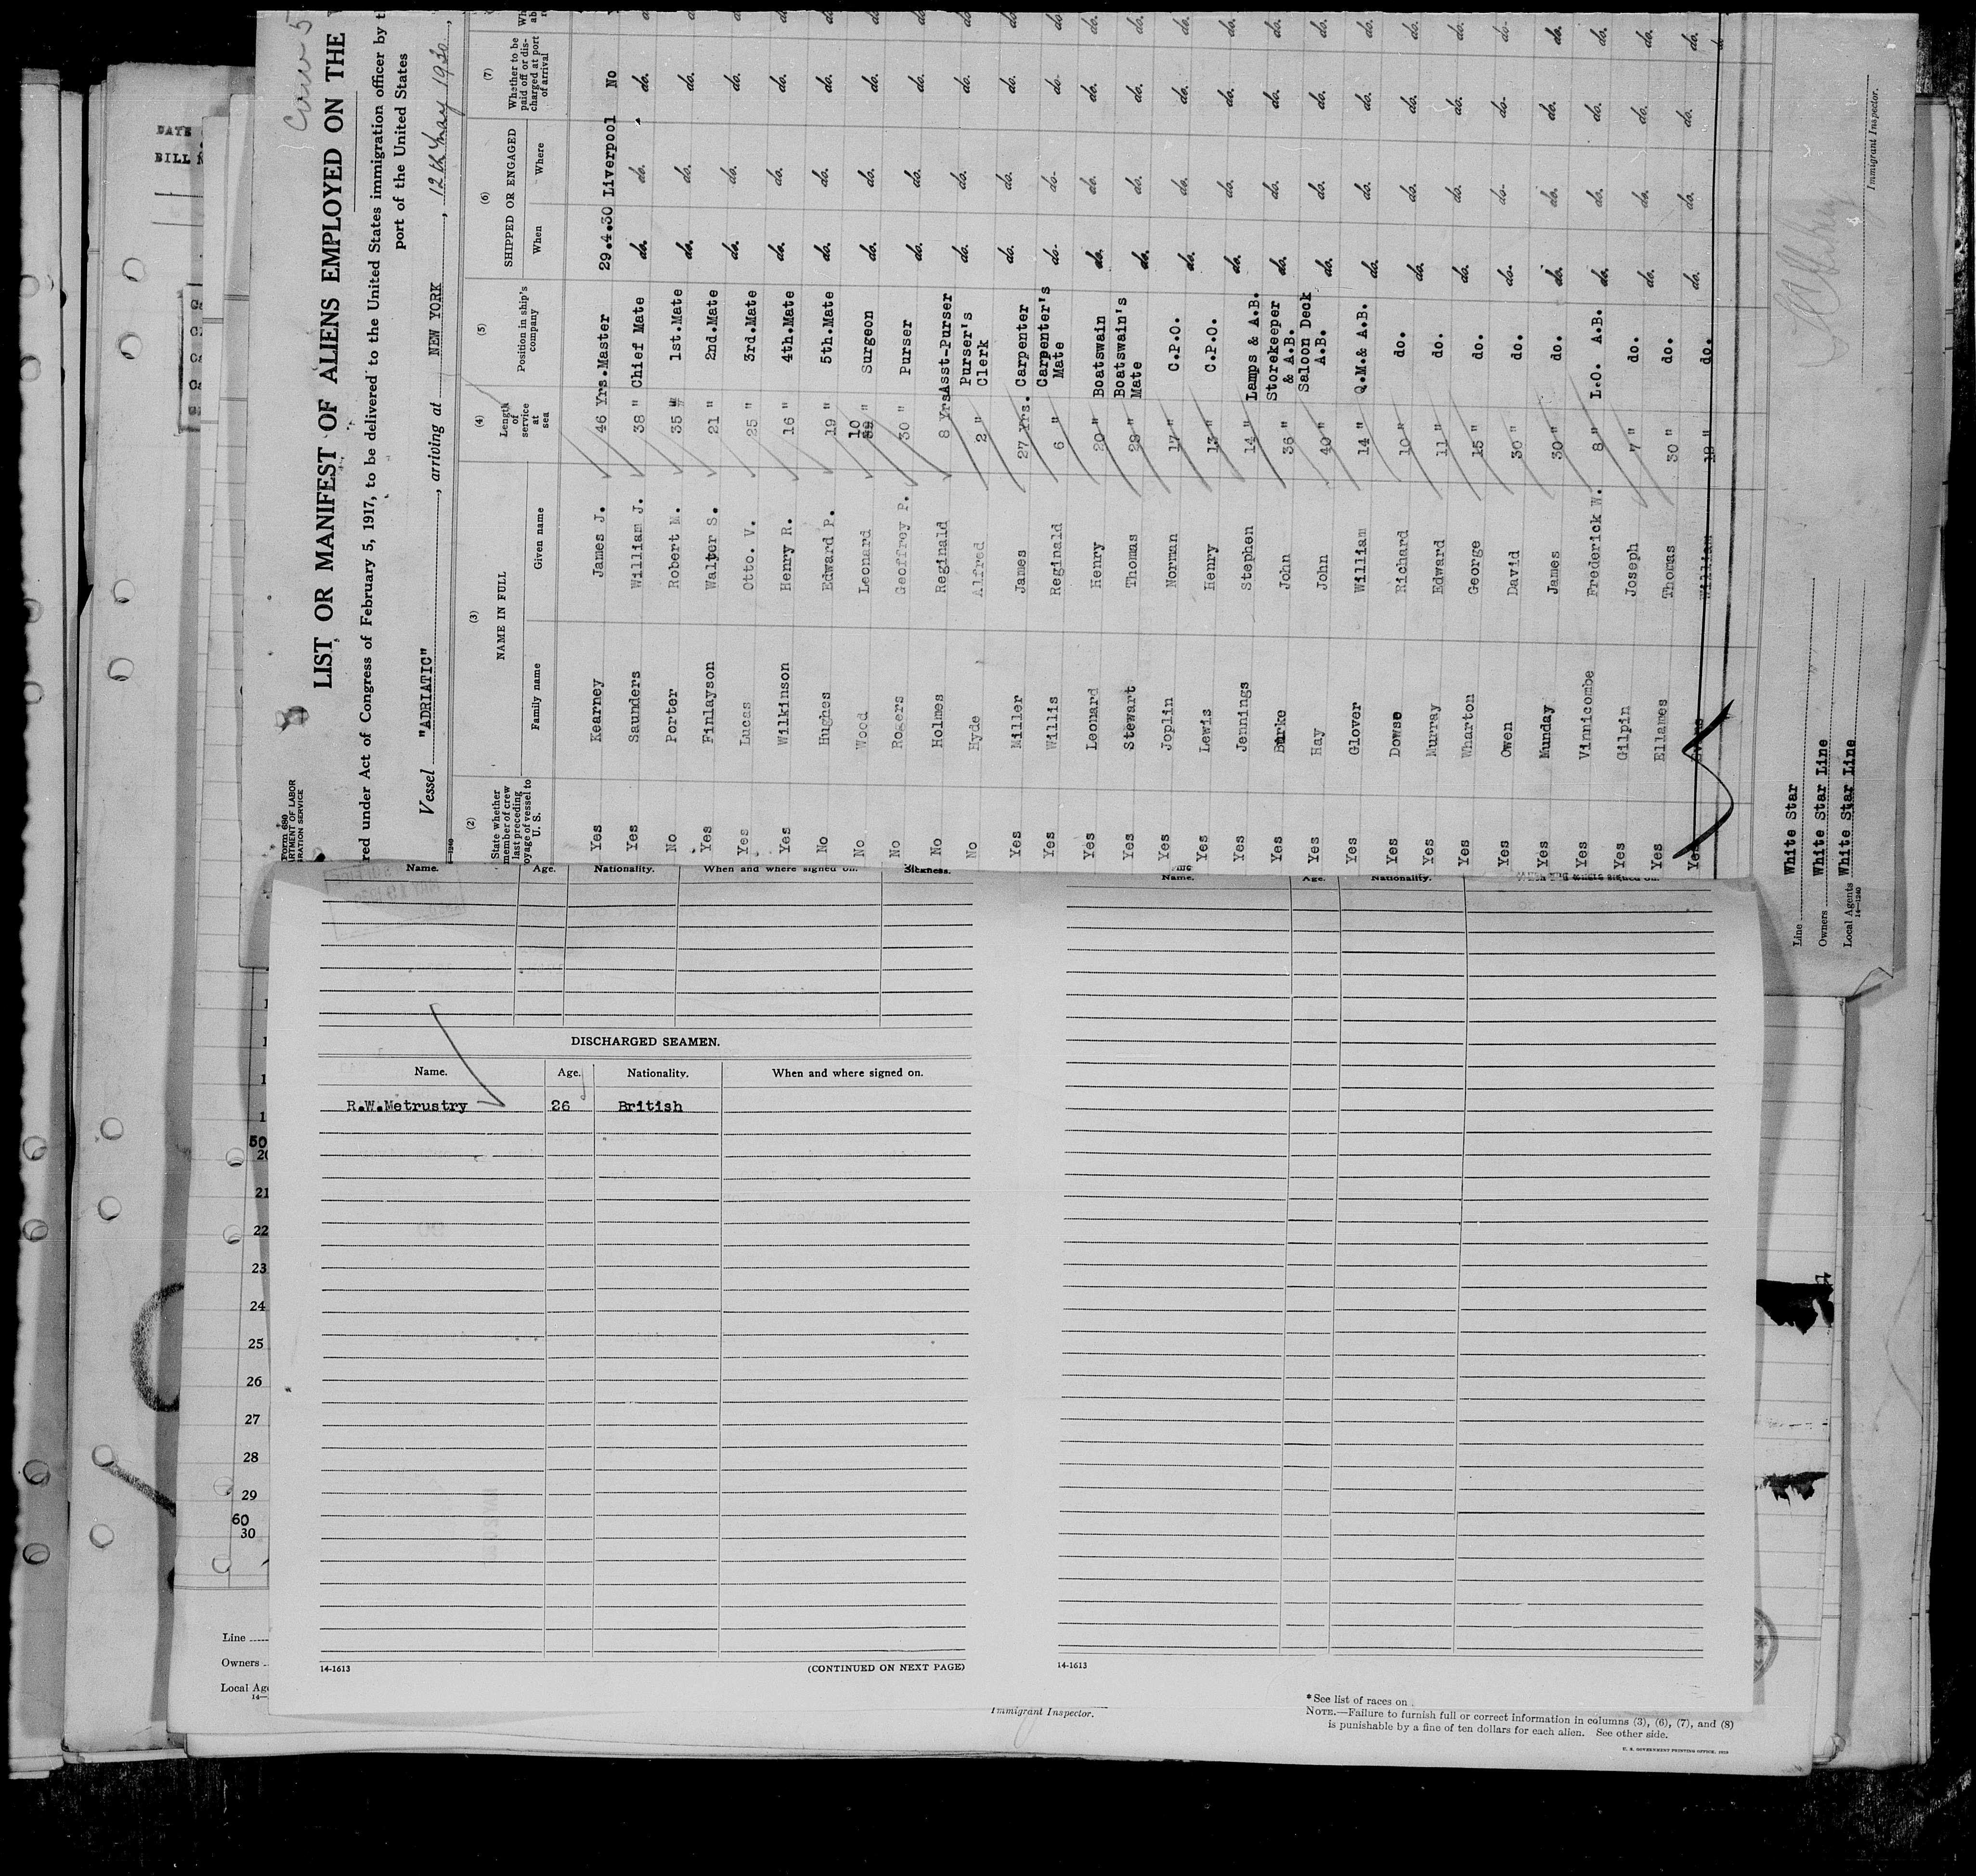 Crew 5
LIST OR MANIFEST OF ALIENS EMPLOYED ON THE
red under Act of Congress of February 5, 1917, to be delivered to the United States immigration officer by t
port of the United States
Form 680
RTMENT OF LABOR
RATION SERVICE
Vessel "ADRIATIC", arriving at NEW YORK, 12th May 1930,
(2) (3) (4) (5) (6) (7)
State whether member of crew last preceding oyage of vessel to U. S.
NAME IN FULL
Family name Given name
Length of service at sea
Position in ship's company
SHIPPED OR ENGAGED
When Where
Whether to be paid off or discharged at port of arrival
Yes Kearney James J. 46 Yrs. Master 29.4.30 Liverpool No
Yes Saunders William J. 38 " Chief Mate do. do. do.
No Porter Robert M. 35 " 1st.Mate do. do. do.
Yes Finlayson Walter S. 21 " 2nd.Mate do. do. do.
Yes Lucas Otto. V. 25 " 3rd.Mate do. do. do.
Yes Wilkinson Henry R. 16 " 4th.Mate do. do. do.
No Hughes Edward P. 19 " 5th.Mate do. do. do.
No Wood Leonard 10 " Surgeon do. do. do.
No Rogers Geoffrey P. 30 " Purser do. do. do.
No Holmes Reginald 8 Yrs Asst-Purser do. do. do.
No Hyde Alfred 2 " Purser's Clerk do. do. do.
Yes Miller James 27 Yrs. Carpenter do. do. do.
Yes Willis Reginald 6 " Carpenter's Mate do. do. do.
Yes Leonard Henry 20 " Boatswain do. do. do.
Yes Stewart Thomas 28 " Boatswain's Mate do. do. do.
Yes Joplin Norman 17 " C.P.O. do. do. do.
Yes Lewis Henry 13 " C.P.O. do. do. do.
Yes Jennings Stephen 14 " Lamps & A.B. do. do. do.
Yes Burke John 36 " Storekeeper & A.B. do. do. do.
Yes Hay John 40 " Saloon Deck A.B. do. do. do.
Yes Glover William 14 " Q.M.& A.B. do. do. do.
Yes Dowse Richard 10 " do. do. do. do.
Yes Murray Edward 11 " do. do. do. do.
Yes Wharton George 15 " do. do. do. do.
Yes Owen David 30 " do. do. do. do.
Yes Munday James 30 " do. do. do. do.
Yes Vinnicombe Frederick W. 8 " L.O. A.B. do. do. do.
Yes Gilpin Joseph 7 " do. do. do. do.
Yes Ellames Thomas 30 " do. do. do. do.
Yes Evans William 18 " do.
Line White Star
Owners White Star Line
Local Agents White Star Line
14-1240
Immigrant Inspector.
DATE
BILL
Name. Age. Nationality. When and where signed on. Sickness.
Name. Age. Nationality.
DISCHARGED SEAMEN.
Name. Age. Nationality. When and where signed on.
R.W.Metrustry 26 British
14-1613 (CONTINUED ON NEXT PAGE) 14-1613
50
20
21
22
23
24
25
26
27
28
29
60
30
Line
Owners
Local Age
14-
Immigrant Inspector.
*See list of races on
NOTE.—Failure to furnish full or correct information in columns (3), (6), (7), and (8)
is punishable by a fine of ten dollars for each alien. See other side.